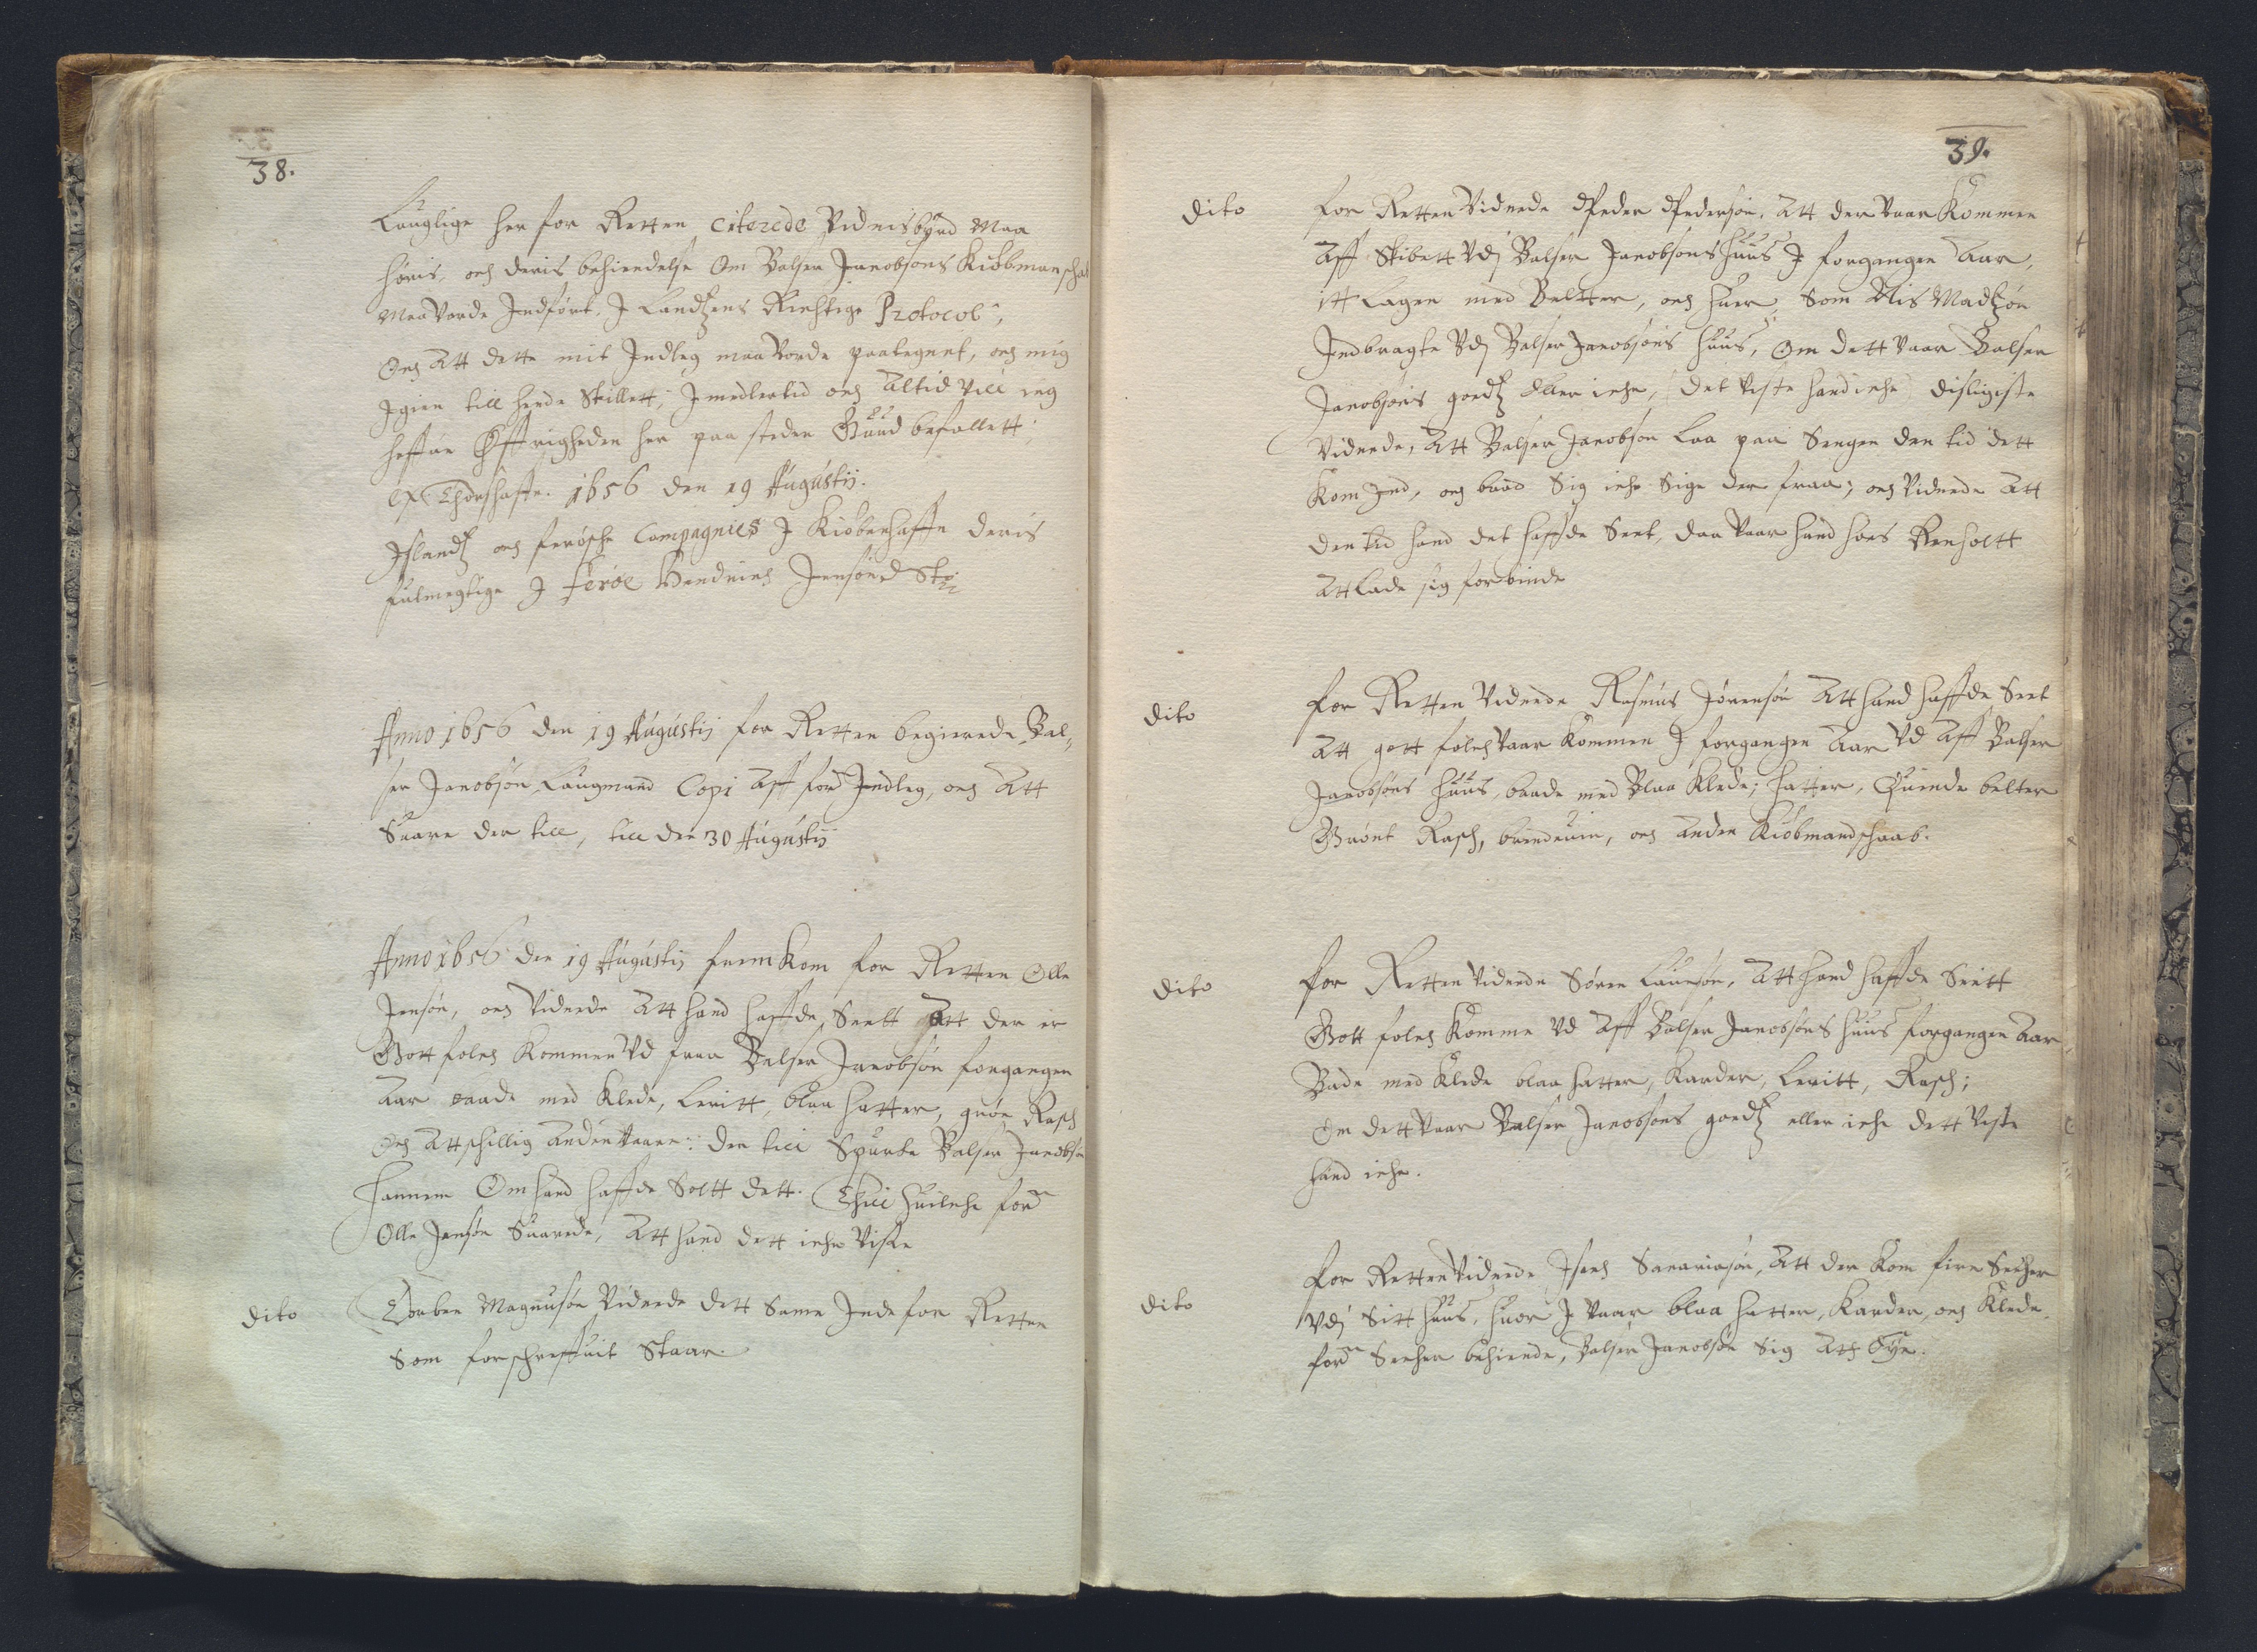 38.
Lauglige her for Retten citerede Vidnisbyrd maa
høris, och deris bekiendelse Om Balser Jacobsøns Kiøbmanschab
maa vorde Indført, J Landtzens Richtige Protocol,
Och Att dette mit Indleg maa vorde paategnet, och mig
Igien till hende stillett; Jmedlertid och Altid vill ieg
haffue Øffrigheden her paa steden Guud befallett;
Thorshaffn. 1656 den 19 Augustij.
Jslandtz och ferøsche Compagnies J Kiøbenhaffn deris
fulmegtige J ferøe Hendrich Jensøn
Anno 1656 den 19 Augustij for Retten begierede Bal-
ser Jacobsøn Laugmand Copi Aff ford Indleg, och Att
Suare der till, till den 30 Augustij
Anno 1656 den 19 Augustij fremkom for Retten Olle
Jensøn, och Vidnede Att hand haffde Seett Att der er
Gott folch kommen Vd fraa Balser Jacobsøn forgangen
Aar baade med Klede, Leritt, blaa hatter, grøn Rasch
Och Attschillig Anden Vaare: der till Spurte Balser Jacobsøn
hannem Om hand haffde Soltt dett. Thill huilche ford
Olle Jensøn Suarede, Att hand dett iche Viste
dito Torben Magnusøn Vidnede dett Same Inde for Retten
Som forschreffuit Staar.
39.
dito for Retten Vidnede Peder Pedersøn, Att der vaar Kommen
Aff Skibett Vdj Balser Jacobsøns huus J forgangen Aar,
itt Lagen med Beltter, och huer, Som Nis Madtzøn
Indbragte Vdj Balser Jacobsøns huus, Om dett vaar Balser
Jacobsøns goedtz eller iche, det viste hand iche, disligiste
Vidnede, Att Balser Jacobsøn Laa paa Sengen den tid dett
Kom Ind, och baad Sig iche Sige der fraa; och Vidnede Att
den tid hand det haffde Seet, daa vaar hand hos Renholtt
Att lade sig forbinde
dito for Retten Vidnede Rasmus Jørensøn Att hand haffde Seet
Att gott folch vaar Kommen J forgangen Aar Vd Aff Balser
Jacobsøns huus, baade med Blaa Klede; hatter, Quinde belter
Grønt Rasch, brendeuin, och Anden Kiøbmandschaab.
dito for Retten Vidnede Søren Laursøn, Att hand haffde Seett
Gott folch Komme Vd Aff Balser Jacobsøns huus forgangen Aar
Bade med Klede blaa hatter, Karder, Leritt, Rasch;
Om dett vaar Balser Jacobsøns goedtz eller iche dett Viste
hand iche.
dito for Retten Vidnede Isach Sacariasøn, Att der Kom fire Secher
Vdj Sitt huus, huor J vaar blaa hatter, Karder, och Klede
ford Secher bekiende, Balser Jacobsøn Sig Att Eye.